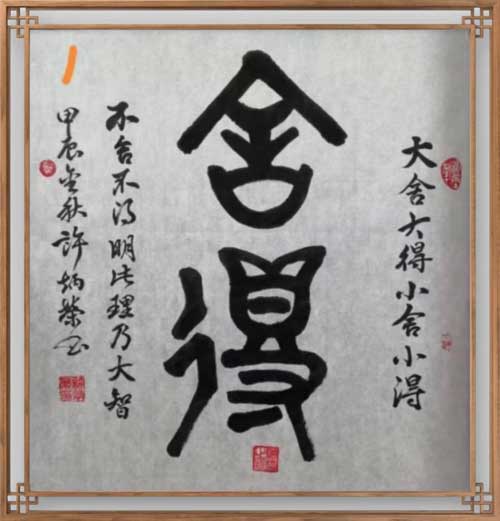 大舍大得小舍小得
舍得
不舍不得明此理乃大智
甲辰金秋许炳荣书